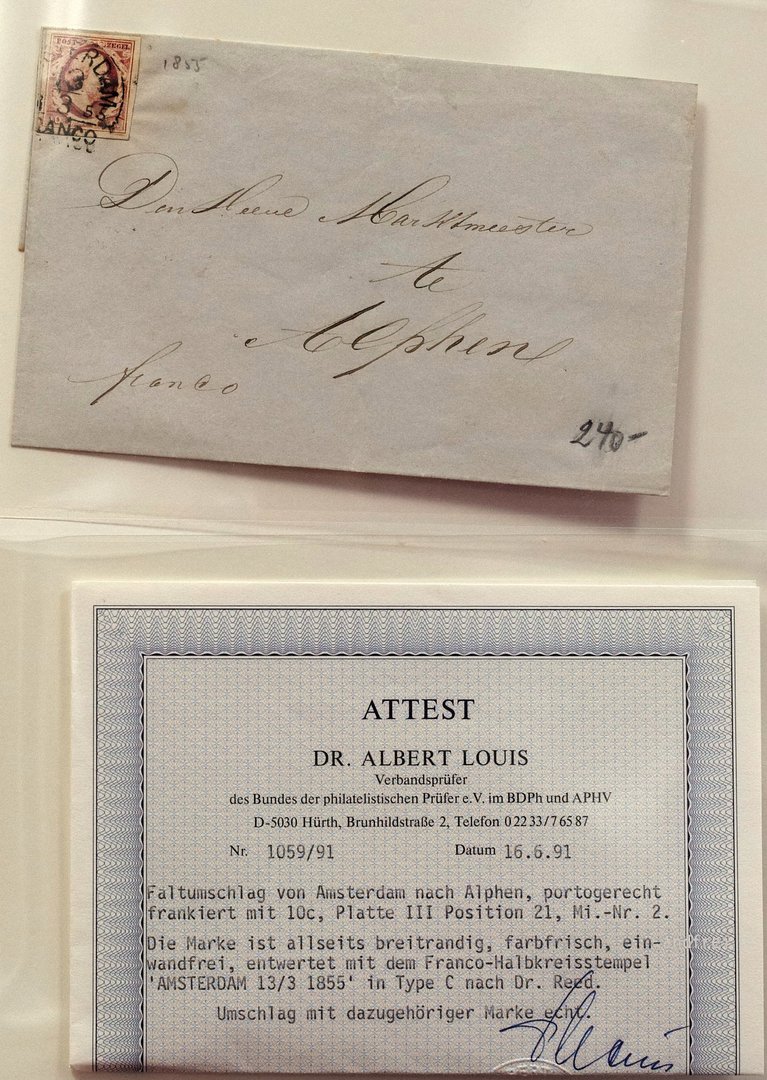 POST ZEGEL
1855
AMSTERDAM
13
3 55
FRANCO
Den Heere Marktmeester
te
Alphen
franco
240-
ATTEST
DR. ALBERT LOUIS
Verbandsprüfer
des Bundes der philatelistischen Prüfer e.V. im BDPh und APHV
D-5030 Hürth, Brunhildstraße 2, Telefon 0 22 33/7 65 87
Nr. 1059/91 Datum 16.6.91
Faltumschlag von Amsterdam nach Alphen, portogerecht
frankiert mit 10c, Platte III Position 21, Mi.-Nr. 2.
Die Marke ist allseits breitrandig, farbfrisch, ein-
wandfrei, entwertet mit dem Franco-Halbkreisstempel
'AMSTERDAM 13/3 1855' in Type C nach Dr. Reed.
Umschlag mit dazugehöriger Marke echt.